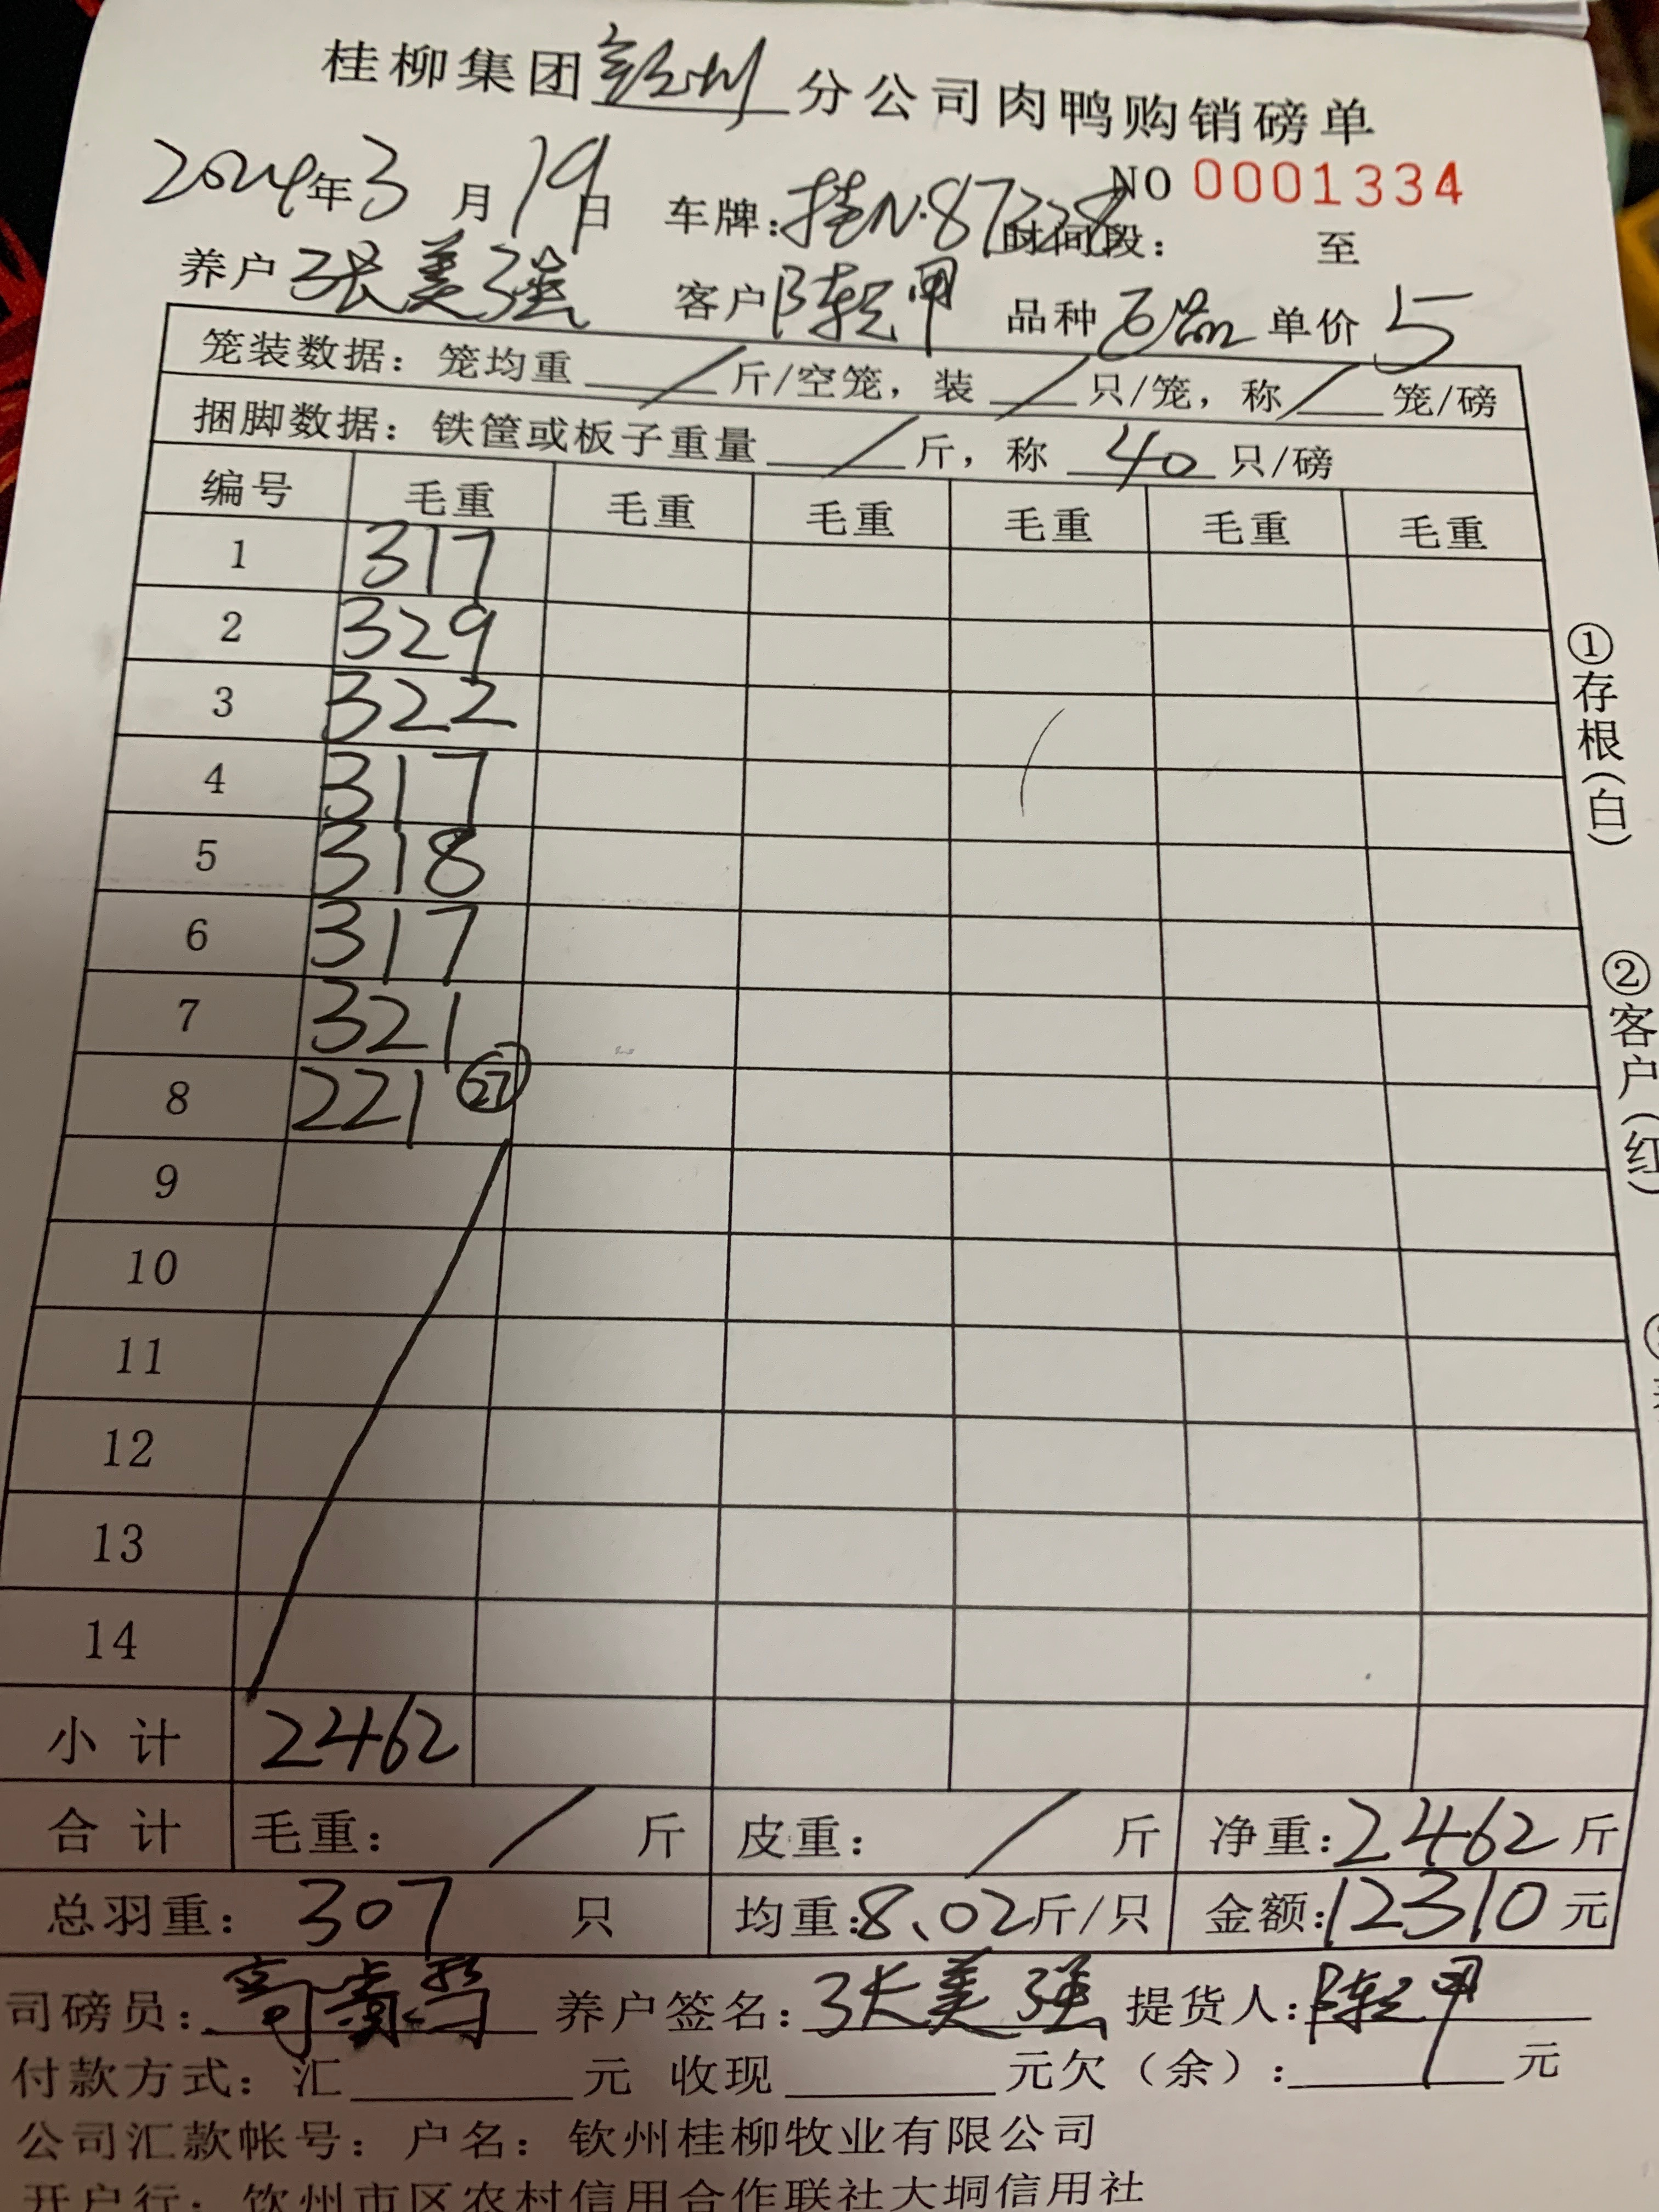 桂柳集团钦州分公司肉鸭购销磅单
NO 0001334
2024年3月19日 车牌:桂N·87328 时间段: 至
养户 张美强 客户 陈 甲 品种 单价 5
笼装数据: 笼均重 / 斤/空笼, 装 / 只/笼, 称 / 笼/磅
捆脚数据: 铁筐或板子重量 / 斤, 称 40 只/磅
编号 毛重 毛重 毛重 毛重 毛重 毛重
1 317
2 329
3 322
4 317
5 318
6 317
7 321
8 221 27
9
10
11
12
13
14
小计 2462
合计 毛重: / 斤 皮重: / 斤 净重: 2462 斤
总羽重: 307 只 均重: 8.02 斤/只 金额: 12310 元
司磅员: 养户签名: 张美强 提货人: 陈 甲
付款方式: 汇 元 收现 元欠(余): 元
公司汇款帐号: 户名: 钦州桂柳牧业有限公司
开户行: 钦州市区农村信用合作联社大垌信用社
①存根(白)
②客户(红)